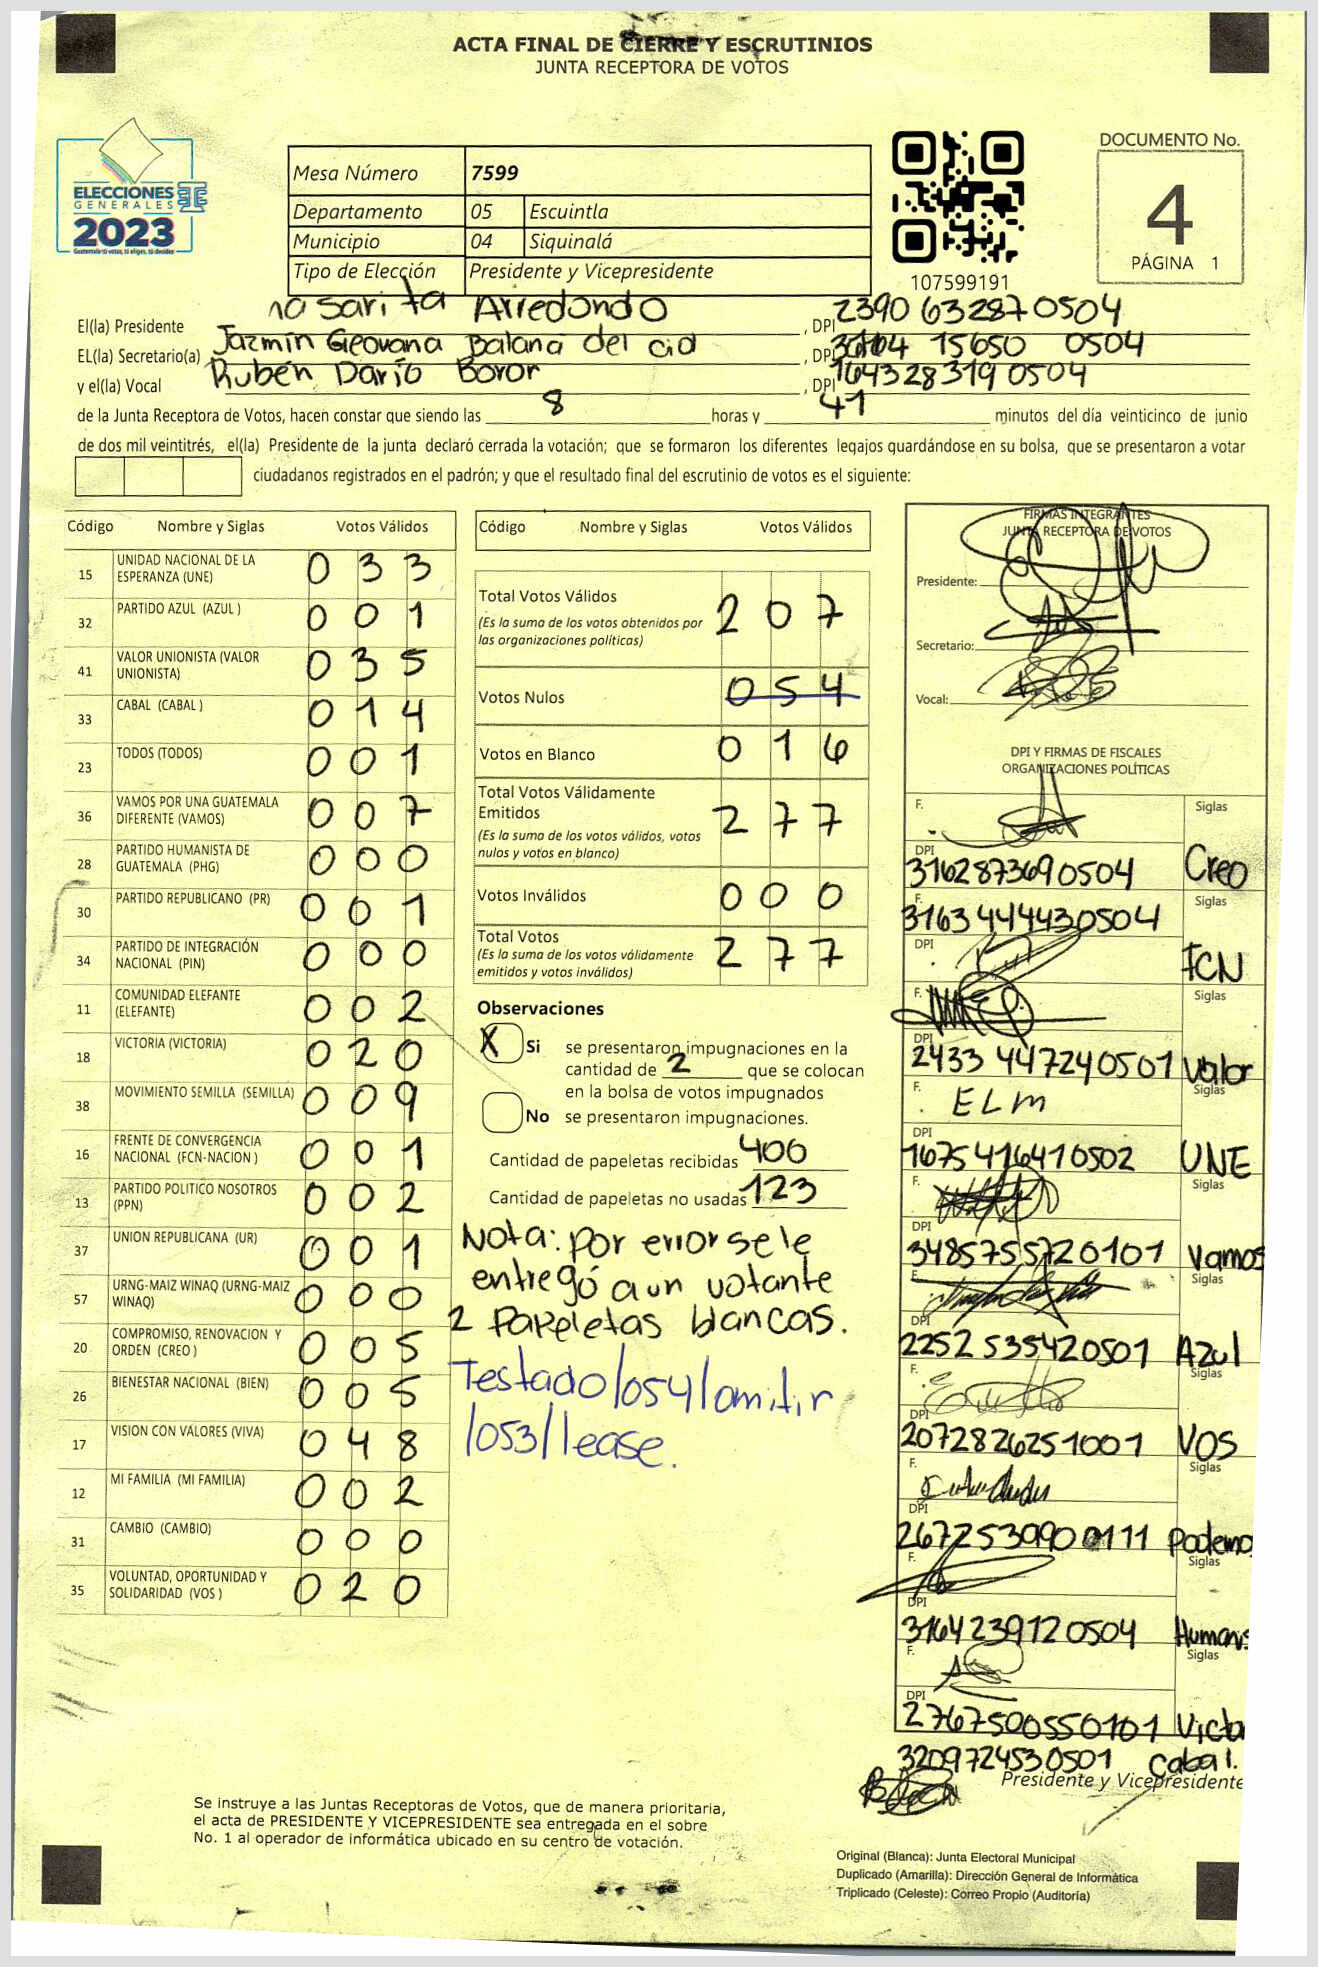 ACTA FINAL DE CIERRE Y ESCRUTINIOS
JUNTA RECEPTORA DE VOTOS
ELECCIONES
GENERALES
2023
Guatemala tú votas, tú eliges, tú decides
Mesa Número 7599
Departamento 05 Escuintla
Municipio 04 Siquinalá
Tipo de Elección Presidente y Vicepresidente
107599191
DOCUMENTO No.
4
PÁGINA 1
El(la) Presidente na sarita Arredondo , DPI 2390 63287 0504
EL(la) Secretario(a) Jazmín Geovana Balana del cid , DPI 15650 0504
y el(la) Vocal Rubén Darío Boror , DPI 164328319 0504
de la Junta Receptora de Votos, hacen constar que siendo las 8 horas y 41 minutos del día veinticinco de junio
de dos mil veintitrés, el(la) Presidente de la junta declaró cerrada la votación; que se formaron los diferentes legajos guardándose en su bolsa, que se presentaron a votar
ciudadanos registrados en el padrón; y que el resultado final del escrutinio de votos es el siguiente:
Código Nombre y Siglas Votos Válidos
15 UNIDAD NACIONAL DE LA ESPERANZA (UNE) 0 3 3
32 PARTIDO AZUL (AZUL ) 0 0 1
41 VALOR UNIONISTA (VALOR UNIONISTA) 0 3 5
33 CABAL (CABAL ) 0 1 4
23 TODOS (TODOS) 0 0 1
36 VAMOS POR UNA GUATEMALA DIFERENTE (VAMOS) 0 0 7
28 PARTIDO HUMANISTA DE GUATEMALA (PHG) 0 0 0
30 PARTIDO REPUBLICANO (PR) 0 0 1
34 PARTIDO DE INTEGRACIÓN NACIONAL (PIN) 0 0 0
11 COMUNIDAD ELEFANTE (ELEFANTE) 0 0 2
18 VICTORIA (VICTORIA) 0 2 0
38 MOVIMIENTO SEMILLA (SEMILLA) 0 0 9
16 FRENTE DE CONVERGENCIA NACIONAL (FCN-NACION ) 0 0 1
13 PARTIDO POLITICO NOSOTROS (PPN) 0 0 2
37 UNION REPUBLICANA (UR) 0 0 1
57 URNG-MAIZ WINAQ (URNG-MAIZ WINAQ) 0 0 0
20 COMPROMISO, RENOVACION Y ORDEN (CREO ) 0 0 5
26 BIENESTAR NACIONAL (BIEN) 0 0 5
17 VISION CON VALORES (VIVA) 0 4 8
12 MI FAMILIA (MI FAMILIA) 0 0 2
31 CAMBIO (CAMBIO) 0 0 0
35 VOLUNTAD, OPORTUNIDAD Y SOLIDARIDAD (VOS ) 0 2 0
Código Nombre y Siglas Votos Válidos
Total Votos Válidos 2 0 7
(Es la suma de los votos obtenidos por
las organizaciones políticas)
Votos Nulos 0 5 4
Votos en Blanco 0 1 6
Total Votos Válidamente
Emitidos 2 7 7
(Es la suma de los votos válidos, votos
nulos y votos en blanco)
Votos Inválidos 0 0 0
Total Votos 2 7 7
(Es la suma de los votos válidamente
emitidos y votos inválidos)
Observaciones
X Si se presentaron impugnaciones en la
cantidad de 2 que se colocan
en la bolsa de votos impugnados
No se presentaron impugnaciones.
Cantidad de papeletas recibidas 400
Cantidad de papeletas no usadas 123
Nota: por error se le
entregó a un votante
2 Papeletas blancas.
Testado/054/omitir
/053/lease.
FIRMAS INTEGRANTES
JUNTA RECEPTORA DE VOTOS
Presidente:
Secretario:
Vocal:
DPI Y FIRMAS DE FISCALES
ORGANIZACIONES POLÍTICAS
F. Siglas
DPI
3162873690504 Creo
F. Siglas
3163444430504
DPI
FCN
F. Siglas
DPI
2433 447240501 Valor
F. ELM Siglas
DPI
1675416410502 UNE
F. Siglas
DPI
3485755720101 Vamos
F. Siglas
DPI
2252 535420501 Azul
F. Siglas
DPI
2072826251001 VOS
F. Siglas
DPI
2672530990 0111 Podemo
F. Siglas
DPI
3164239120504 Humanis
F. Siglas
DPI
2767500550101 Victo
3209724530501 Cabal.
Presidente y Vicepresidente
Se instruye a las Juntas Receptoras de Votos, que de manera prioritaria,
el acta de PRESIDENTE Y VICEPRESIDENTE sea entregada en el sobre
No. 1 al operador de informática ubicado en su centro de votación.
Original (Blanca): Junta Electoral Municipal
Duplicado (Amarilla): Dirección General de Informática
Triplicado (Celeste): Correo Propio (Auditoría)